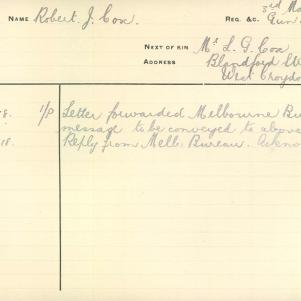 NAME Robert J. Cox
REG. &C. 3rd
Gun
NEXT OF KIN Mr L. G. Cox
ADDRESS Blandford
West Croydon
8. 1/P Letter forwarded Melbourne Bu
message to be conveyed to above
18. Reply from Melb. Bureau. Ackno